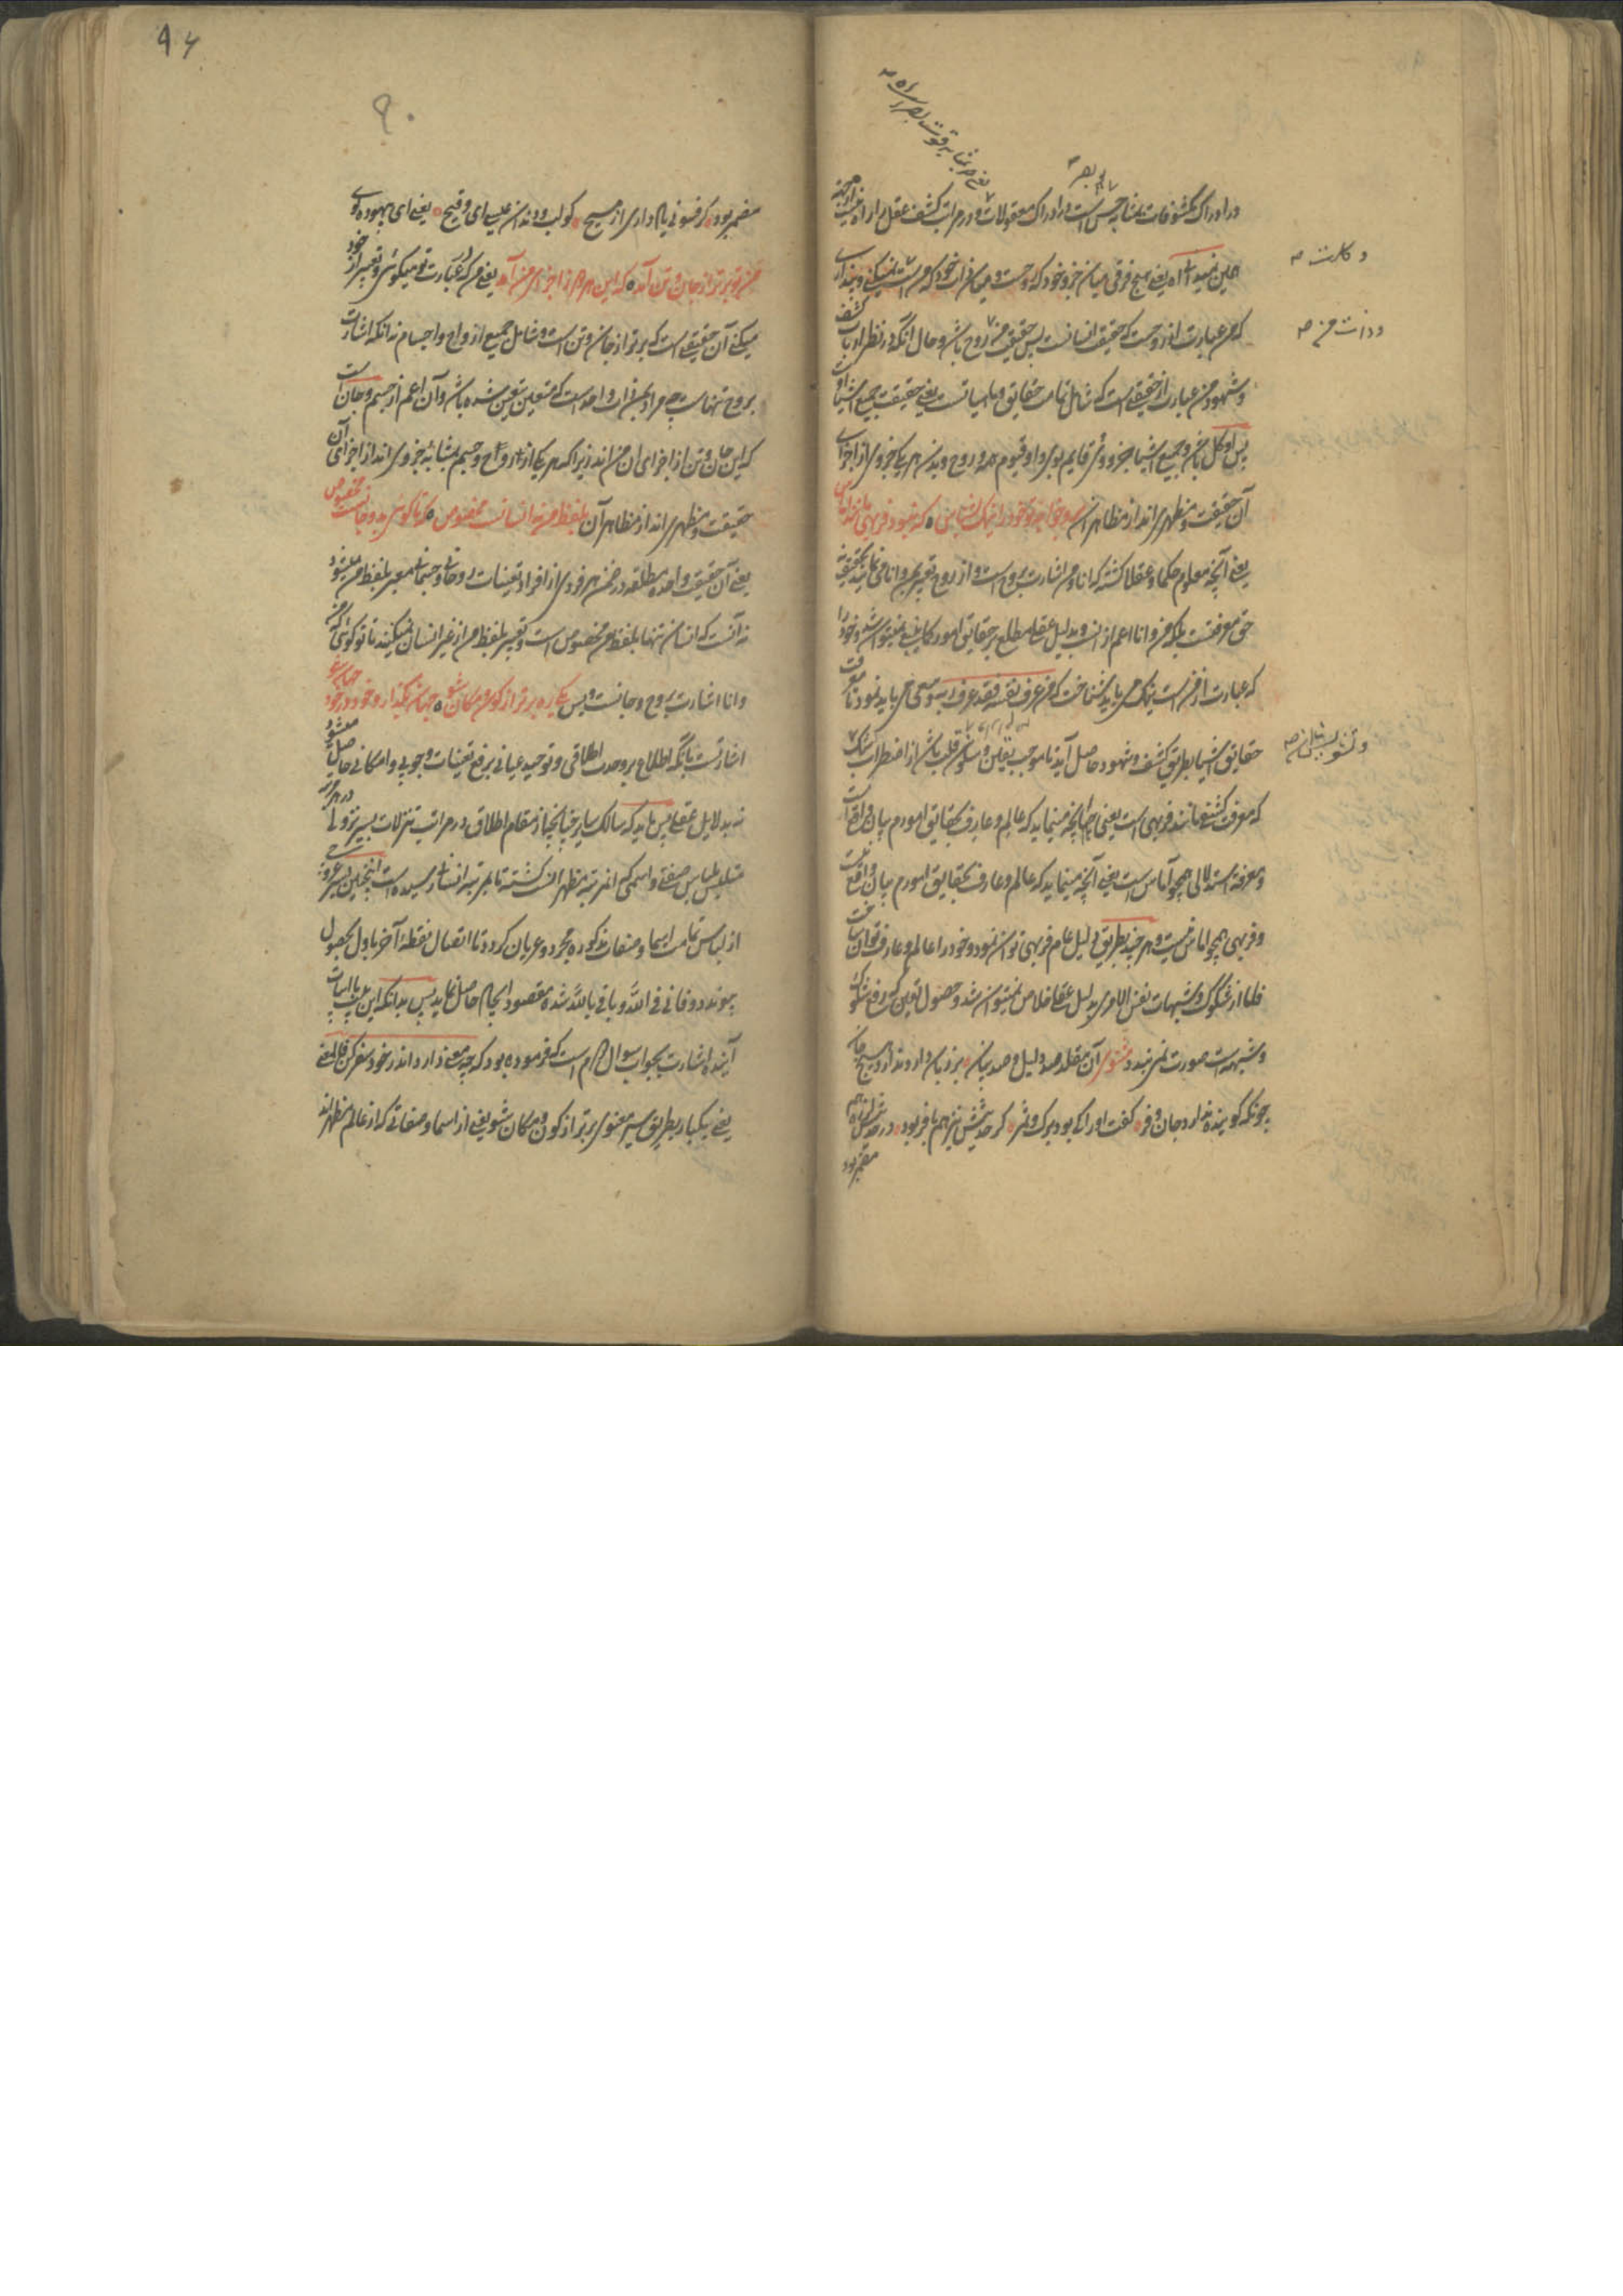 در ادراک مکشوفات بمثابه حس است در ادراک معقولات و در مراتب کشف عقل را راه نیست
یعنی هیچ فرقی میان جزو خود که روحست و میان ذات خود که
که من عبارت از روحست که حقیقت انسانست پس حقیقت من روح باشد و حال آنکه در نظر ارباب کشف
و شهود من عبارت از حقیقتی است که شامل تمامت حقایق و ماهیاتست یعنی حقیقت جمیع اشیا اوست
پس او کل باشد و جمیع اشیا جزو و وی قایم بوی و او قیوم همه و روح و بدن هر یک جزوی از اجزای
آن حقیقت و مظهری اند از مظاهر آن برو ای خواجه خود را نیک بشناس ٥ که نبود فربهی مانند آماس
یعنی آنچه معلوم حکما و عقلا گشته که انا و من اشارت بروح است و از روح تعبیر بمن و انا می نمایند بحقیقت
حق معرفتست بلکه من و انا اعم از آنست و بدلیل عقل مطلع بر حقایق امور کماهی نمیتوان شد و خود را
که عبارت از من است نیک می باید شناخت که من عرف نفسه فقد عرف ربه و سعی می باید نمود تا معرفت
حقایق اشیا بطریق کشف و شهود حاصل آید تا موجب یقین و سکون قلب باشد از اضطراب شک
که معرفت کشفی مانند فربهی است یعنی آنچه مینماید که عالم و عارف بحقایق امورم بیان واقعست
و معرفة استدلالی همچو آماس است یعنی آنچه مینماید که عالم و عارف بحقایق امورم بیان واقع نیست
و فربهی همچو اماس نیست و هر چند بطریق دلیل عام فربهی توان نمود و خود را عالم و عارف توان ساخت
فاما از شکوک و شبهات نفس الامری بدلیل عقلی خلاص نمیتوان شد و حصول یقین که رفع شکوک
و شبهه است صورت نمی بندد مثنوی آن مقلد صد دلیل و صد بیان ٥ بر زبان دارد ندارد هیچ جان
چونکه گوینده ندارد جان و فر ٥ گفت او را کی بود برگ و ثمر ٥ گر حدیثش نیز هم بافر بود ٥ در حدیثش لرزه هم
مضمر بود
و کلست صح
و ذات من صح
٩٦
٩٠
مضمر بود ٥ گر فسونی یاد داری از مسیح ٥ کو لب و دندان عیسی ای وقیح ٥ یعنی ای بیهوده گوی
من تو برتر از جان و تن آمد ٥ که این هر دو ز اجزای من آمد یعنی من که در عبارت تو میگوئی و تعبیر از خود
میکنی آن حقیقتی است که برتر از جان و تن است و شامل جمیع ارواح و اجسام نه انکه اشارت
بروح تنها باشد چه مراد بمن ذات واحد است که متعین بتعین شده باشد و آن اعم از جسم و جان است
که این جان و تن از اجزای آن من اند زیرا که هر یک از ارواح و جسم بمثابه جزوی اند از اجزای آن
حقیقت و مظهری اند از مظاهر آن بلفظ من نه انسانست مخصوص ٥ که تا گوئی بدو جانست مخصوص
یعنی آن حقیقت واحده مطلقه در ضمن هر فردی از افراد تعینات روحانی و جسمانی معبر بلفظ من میشود
نه آنست که انسان تنها بلفظ من مخصوص است و تعبیر بلفظ من از غیر انسان نمیکنند تا تو گوئی که من
و انا اشارت بروح و جانست و بس یکی ره برتر از کون و مکان شو ٥ جهان بگذار و خود در خود جهان شو
اشارتست بانکه اطلاع بر وحدت اطلاقی و توحید عیانی برفع تعینات وجوبی و امکانی حاصل میشود
نه بدلایل عقلی پس باید که سالک سایر چنانچه از مقام اطلاق در مراتب تنزلات بسیر نزولی در هر مرتبه
متلبس بلباس صفتی و اسمی که انمرتبه مظهر انست گشته تا بمرتبه انسانی رسیده است اینچنین بسیر عروجی
از لباس تمامت اسما و صفات مذکوره مجرد و عریان گردد تا اتصال نقطه آخر باول بحصول
پیوندد و فانی فی الله و باقی بالله شده مقصود انجام حاصل نماید پس بدانکه این بیت با ابیات
آینده اشارت بجواب سوال دوم است که فرموده بود که چه معنی دارد اندر خود سفر کن فالمعنی
یعنی یکبار بطریق سیر معنوی برتر از کون و مکان شو یعنی از اسما و صفاتی که از عالم مظهر اند